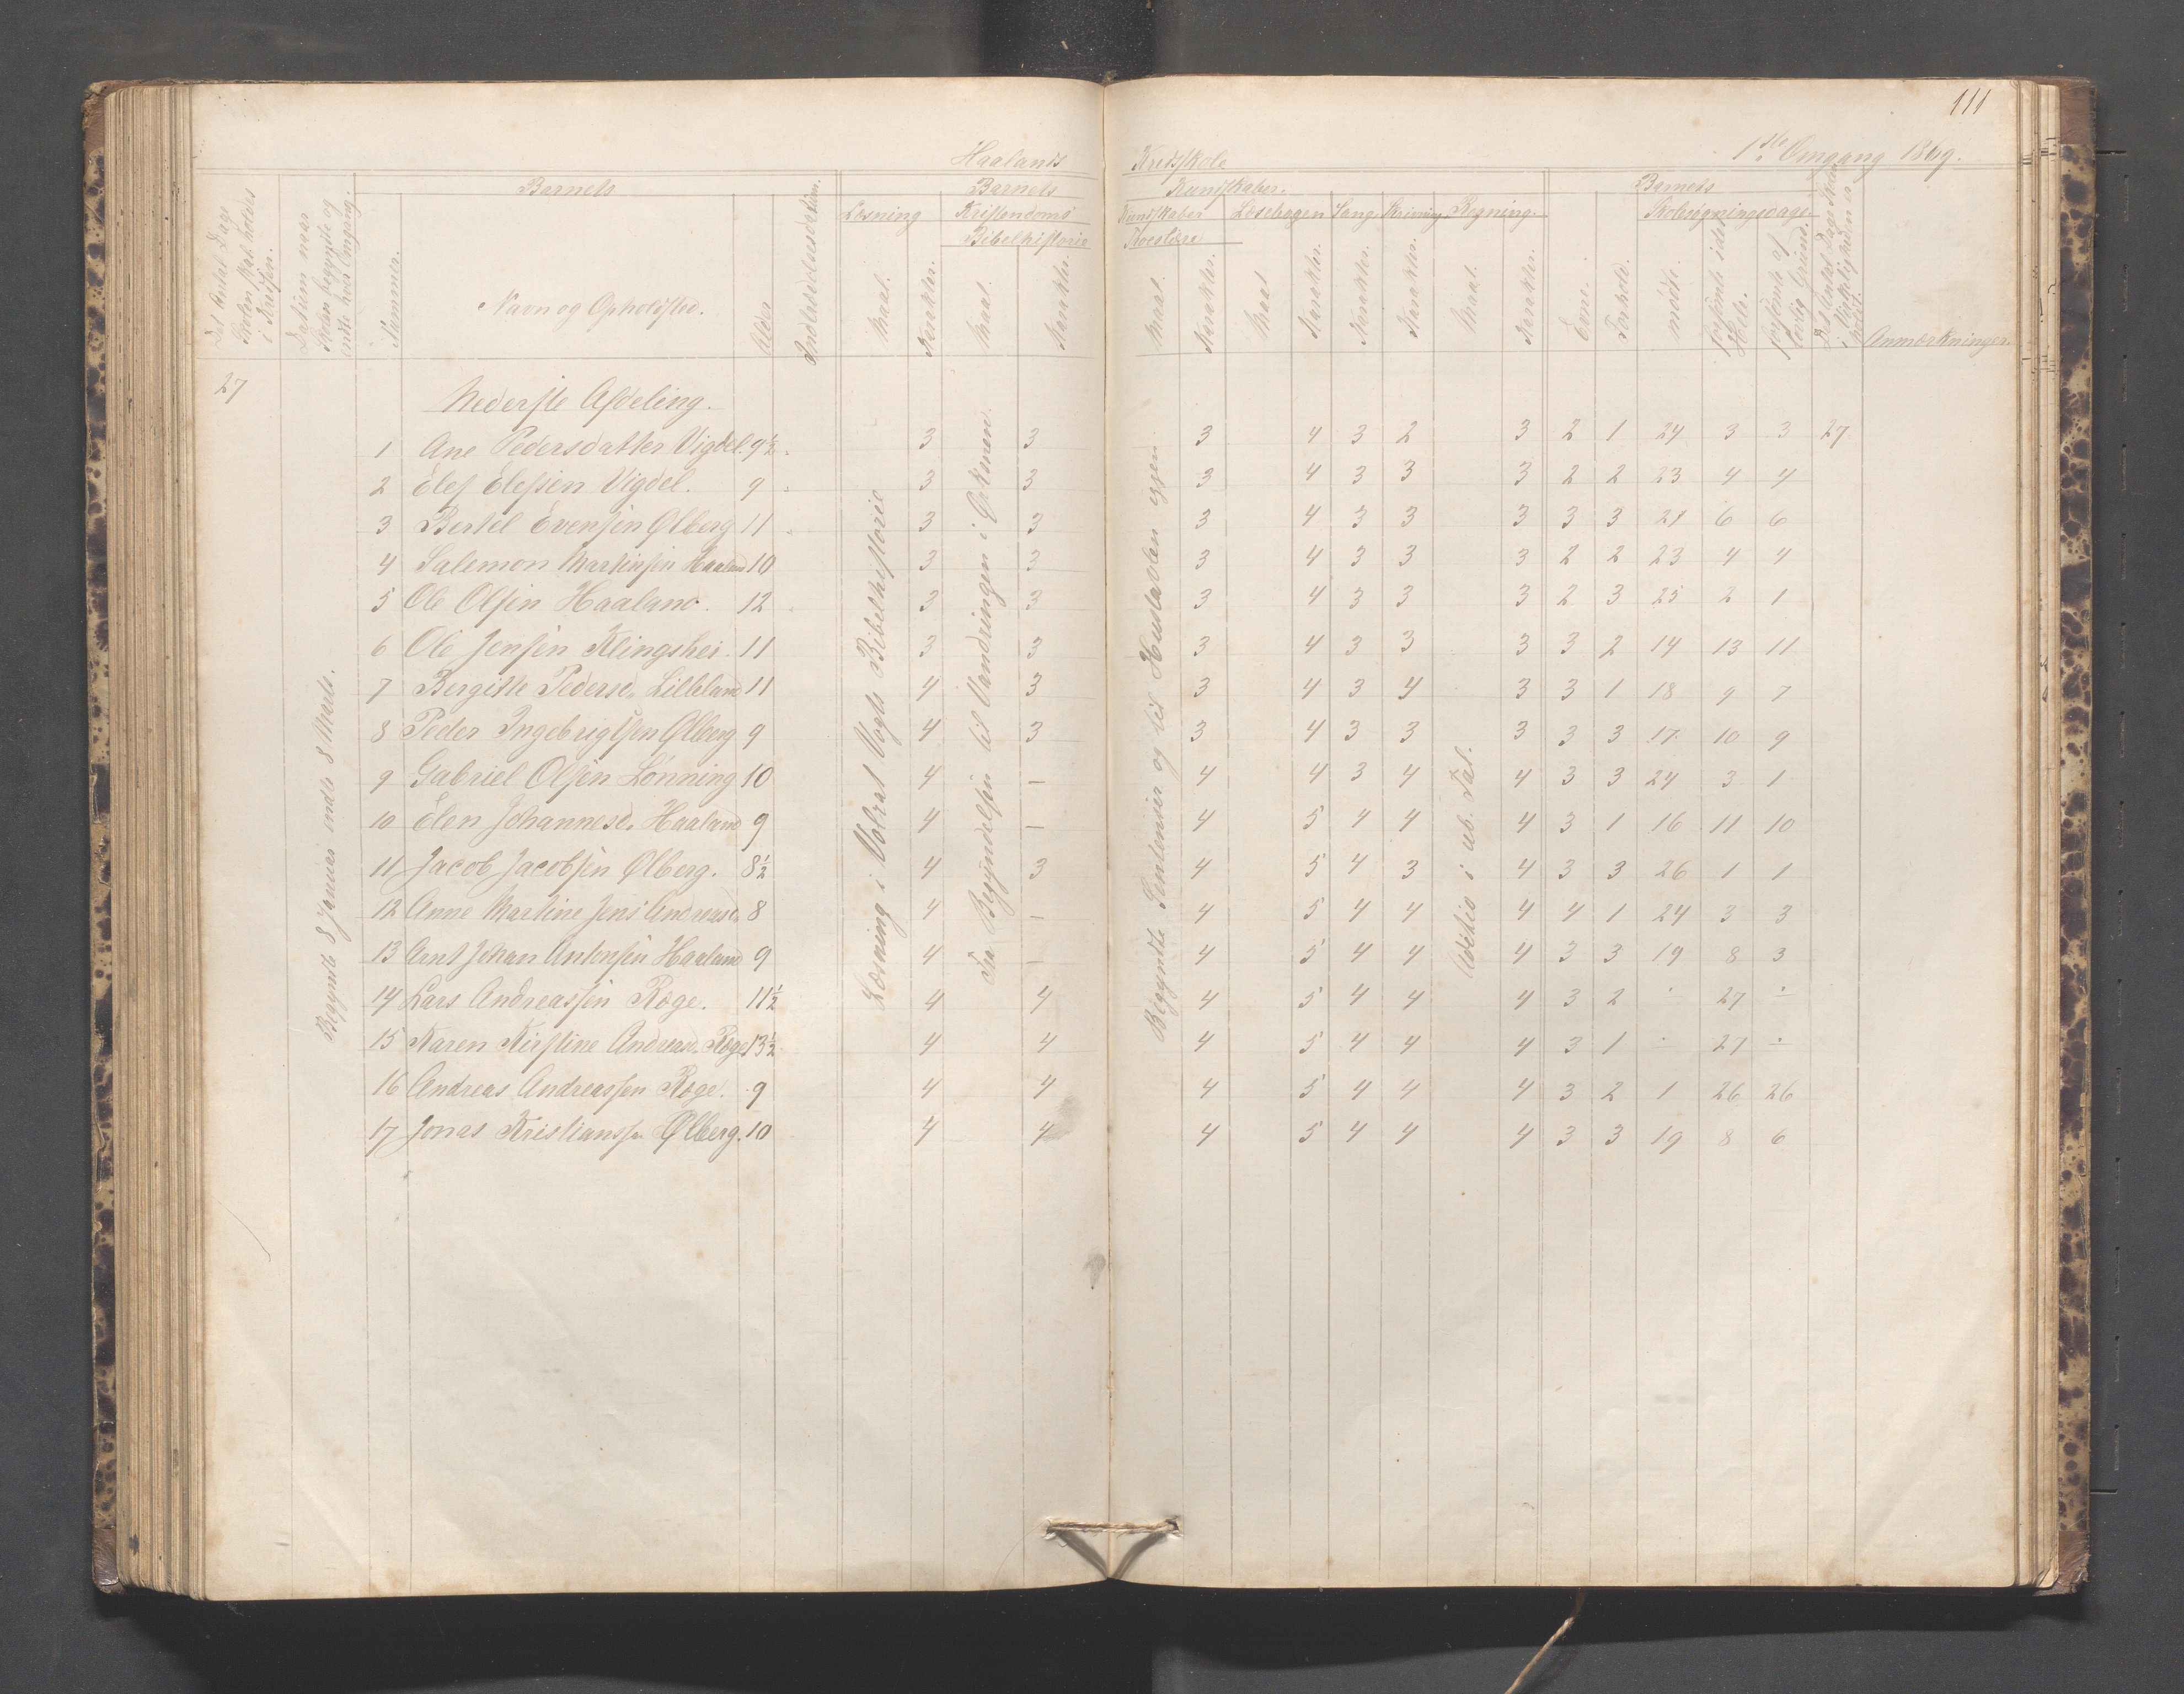 111
Haalands Kredsskole 1ste Omgang 1869.
Det Antal Dage Skolen skal holdes i Kredsen.
Datum naar Skolen begyndte og endte hver Omgang.
Barnets
Nummer.
Navn og Opholdsted.
Alder
Indtrædelsesdatum.
Barnets Kundskaber.
Læsning
Maal.
Karakter.
Kristendoms Kundskaber
Bibelhistorie
Maal.
Karakter.
Troeslære
Maal.
Karakter.
Læsebogen
Maal
Karakter.
Sang.
Karakter.
Skrivning
Karakter.
Regning.
Maal.
Karakter.
Barnets
Evne.
Forhold.
Skolesøgningsdage.
mødte.
forsømte i det Hele.
forsømte af lovlig Grund.
Det Antal Dage Skolen i Virkeligheden er holdt.
Anmærkninger.
27
Begyndte 8 Januar endte 8 Marts.
Læsning i Volrat Vogts Bibelhistorie
Fra Begyndelsen til Vandringen i Ørkenen.
Begyndte Sentenser og til Hustavlen igjen.
Addition i ub. Tal.
Nederste Afdeling.
1 Ane Pedersdatter Vigdel. 9½ 3 3 3 4 3 2 3 2 1 24 3 3 27
2 Elef Elefsen Vigdel. 9 3 3 3 4 3 3 3 2 2 23 4 4
3 Bertel Evensen Ølberg 11 3 3 3 4 3 3 3 3 3 21 6 6
4 Salemon Martinsen Haaland 10 3 3 3 4 3 3 3 2 2 23 4 4
5 Ole Olsen Haaland. 12 3 3 3 4 3 3 3 2 3 25 2 1
6 Ole Jensen Klingshei. 11 3 3 3 4 3 3 3 3 2 14 13 11
7 Bergitte Pedersd. Lilleland 11 4 3 3 4 3 4 3 3 1 18 9 7
8 Peder Ingebrigtsen Ølberg 9 4 3 3 4 3 3 3 3 3 17 10 9
9 Gabriel Olsen Lønning 10 4 — 4 4 3 4 4 3 3 24 3 1
10 Elen Johannesd. Haaland 9 4 — 4 5 4 4 4 3 1 16 11 10
11 Jacob Jacobsen Ølberg. 8½ 4 3 4 5 4 3 4 3 3 26 1 1
12 Anne Martine Jens Andreasd. 8 4 — 4 5 4 4 4 4 1 24 3 3
13 Arnt Johan Antonsen Haaland 9 4 — 4 5 4 4 4 3 3 19 8 3
14 Lars Andreassen Røge. 11½ 4 4 4 5 4 4 4 3 2 ÷ 27 ÷
15 Karen Kirstine Andreasd. Røge 13½ 4 4 4 5 4 4 4 3 1 ÷ 27 ÷
16 Andreas Andreassen Røge. 9 4 4 4 5 4 4 4 3 2 1 26 26
17 Jonas Kristianssen Ølberg. 10 4 4 4 5 4 4 4 3 3 19 8 6